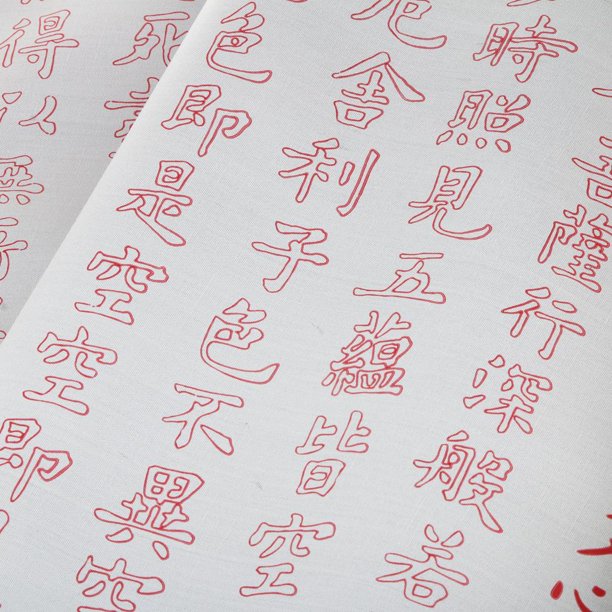 心
菩薩行深般若
時照見五蘊皆空
厄舍利子色不異空
色即是空空即
死
得以無